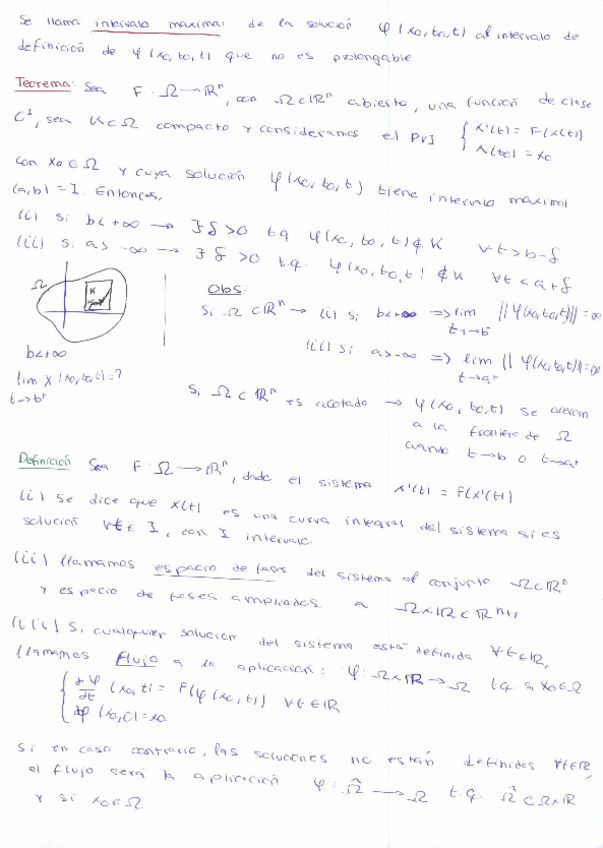 Se llama intervalo maximal de la solución φ(x0,t0,t) al intervalo de
definición de φ(x0,t0,t) que no es prolongable
Teorema: Sea F: Ω→ℝⁿ, con Ω⊂ℝⁿ abierto, una función de clase
C¹, sea K⊂Ω compacto y consideramos el PVI { x'(t) = F(x(t))
x(t0) = x0
con x0∈Ω y cuya solución φ(x0,t0,t) tiene intervalo maximal
(a,b) = I. Entonces,
(i) si b<+∞ → ∃ δ>0 t.q φ(x0,t0,t)∉K ∀t>b-δ
(ii) si a>-∞ → ∃ δ>0 t.q. φ(x0,t0,t)∉K ∀t<a+δ
Ω
K
b<+∞
lim x(x0,t0,t)=?
t→b⁻
Obs:
Si Ω⊂ℝⁿ → (i) si b<+∞ ⇒ lim ||φ(x0,t0,t)||=∞
t→b⁻
(ii) si a>-∞ ⇒ lim ||φ(x0,t0,t)||=∞
t→a⁺
Si Ω⊂ℝⁿ es acotado → φ(x0,t0,t) se acercan
a la frontera de Ω
cuando t→b o t→a⁺
Definición Sea F: Ω→ℝⁿ, dado el sistema x'(t) = F(x'(t))
(i) Se dice que x(t) es una curva integral del sistema si es
solución ∀t∈I, con I intervalo.
(ii) llamamos espacio de fases del sistema al conjunto Ω⊂ℝⁿ
y espacio de fases ampliados a Ω×ℝ⊂ℝⁿ⁺¹
(iii) Si cualquier solución del sistema está definida ∀t∈ℝ,
llamamos flujo a la aplicación: φ: Ω×ℝ→Ω t.q si x0∈Ω
{ dφ/dt (x0,t) = F(φ(x0,t)) ∀t∈ℝ
φ(x0,0)=x0
Si en caso contrario, las soluciones no están definidas ∀t∈ℝ,
el flujo será la aplicación φ: Ω̂ → Ω t.q. Ω̂⊂Ω×ℝ
y si x0∈Ω